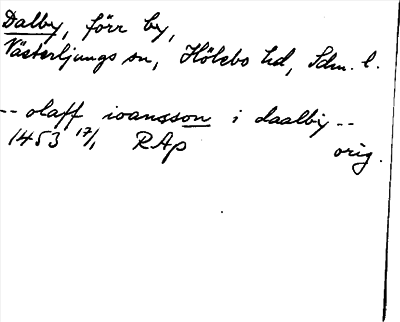 Dalby, förr by,
Västerljungs sn, Hölebo hd, Sdm. l.
-- olaff ioansson i daalby --
1453 17/1 RAp orig.